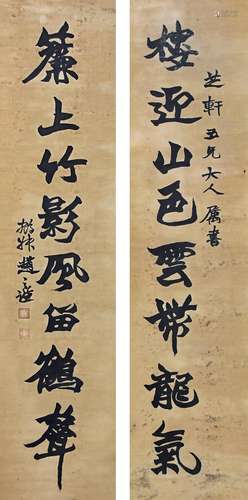 樓迎山色雲帶龍氣
芝軒五兄大人屬書
簾上竹影風留鶴聲
撝叔趙之謙